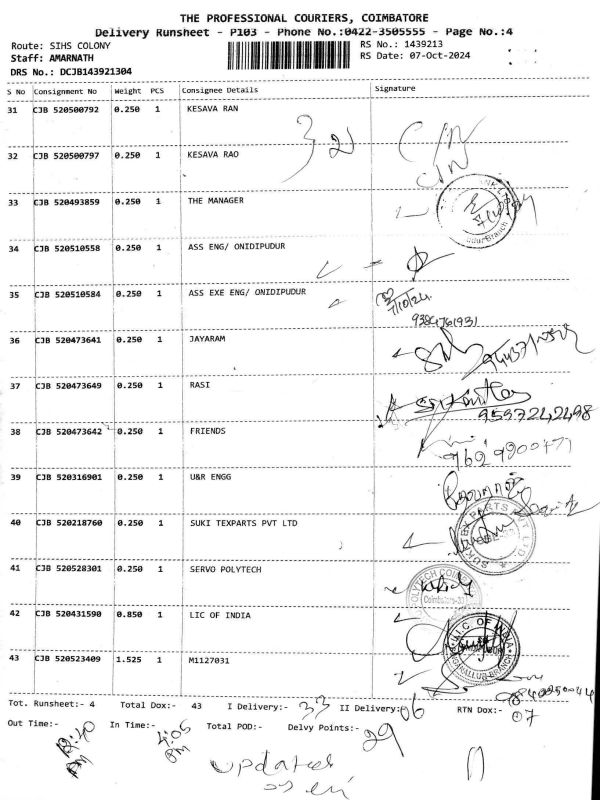 THE PROFESSIONAL COURIERS, COIMBATORE
Delivery Runsheet - P103 - Phone No.:0422-3505555 - Page No.:4
Route: SIHS COLONY
RS No.: 1439213
Staff: AMARNATH
RS Date: 07-Oct-2024
DRS No.: DCJB143921304
S No Consignment No Weight PCS Consignee Details Signature
31 CJB 520500792 0.250 1 KESAVA RAN
32 CJB 520500797 0.250 1 KESAVA RAO
33 CJB 520493859 0.250 1 THE MANAGER
34 CJB 520510558 0.250 1 ASS ENG/ ONIDIPUDUR
35 CJB 520510584 0.250 1 ASS EXE ENG/ ONIDIPUDUR
7/10/24
9384761931
36 CJB 520473641 0.250 1 JAYARAM
37 CJB 520473649 0.250 1 RASI
9597242498
38 CJB 520473642 0.250 1 FRIENDS
39 CJB 520316901 0.250 1 U&R ENGG
40 CJB 520218760 0.250 1 SUKI TEXPARTS PVT LTD
41 CJB 520528301 0.250 1 SERVO POLYTECH
42 CJB 520431590 0.850 1 LIC OF INDIA
43 CJB 520523409 1.525 1 M1127031
Tot. Runsheet:- 4 Total Dox:- 43 I Delivery:- 33 II Delivery:- 06 RTN Dox:- 07
Out Time:- 12:40 PM In Time:- 4:05 PM Total POD:- Delvy Points:- 29
updated